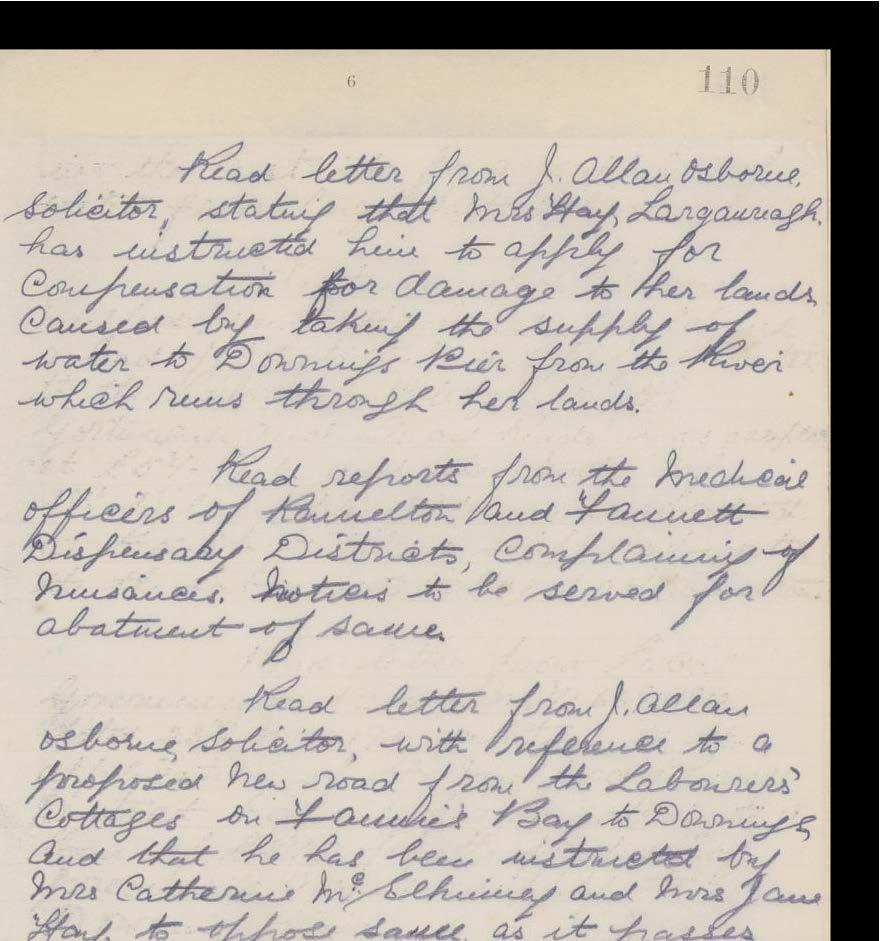 6
110
Read letter from J. Allan Osborne,
Solicitor, stating that Mrs Hay, Largaureagh.
has instructed him to apply for
Compensation for damage to her lands,
Caused by taking the supply of
water to Downings Pier from the River
which runs through her lands.
Read reports from the Medical
officers of Ramelton and Fannett
Dispensary Districts, Complaining of
Nuisances. Notices to be served for
abatment of same.
Read letter from J. Allan
Osborne, Solicitor, with reference to a
proposed new road from the Labourers'
Cottages on Fannie's Bay to Downings,
and that he has been instructed by
Mrs Catherine McElhinney and Mrs Jane
Hay, to oppose same, as it passes